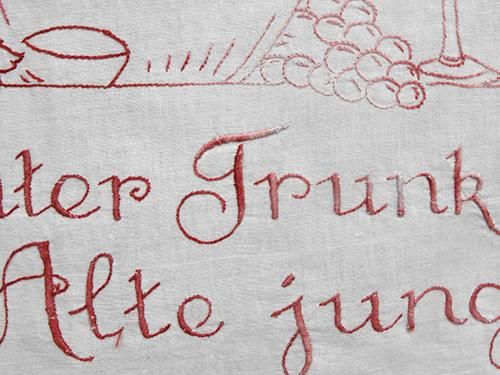 uter Trunk
Alte jung